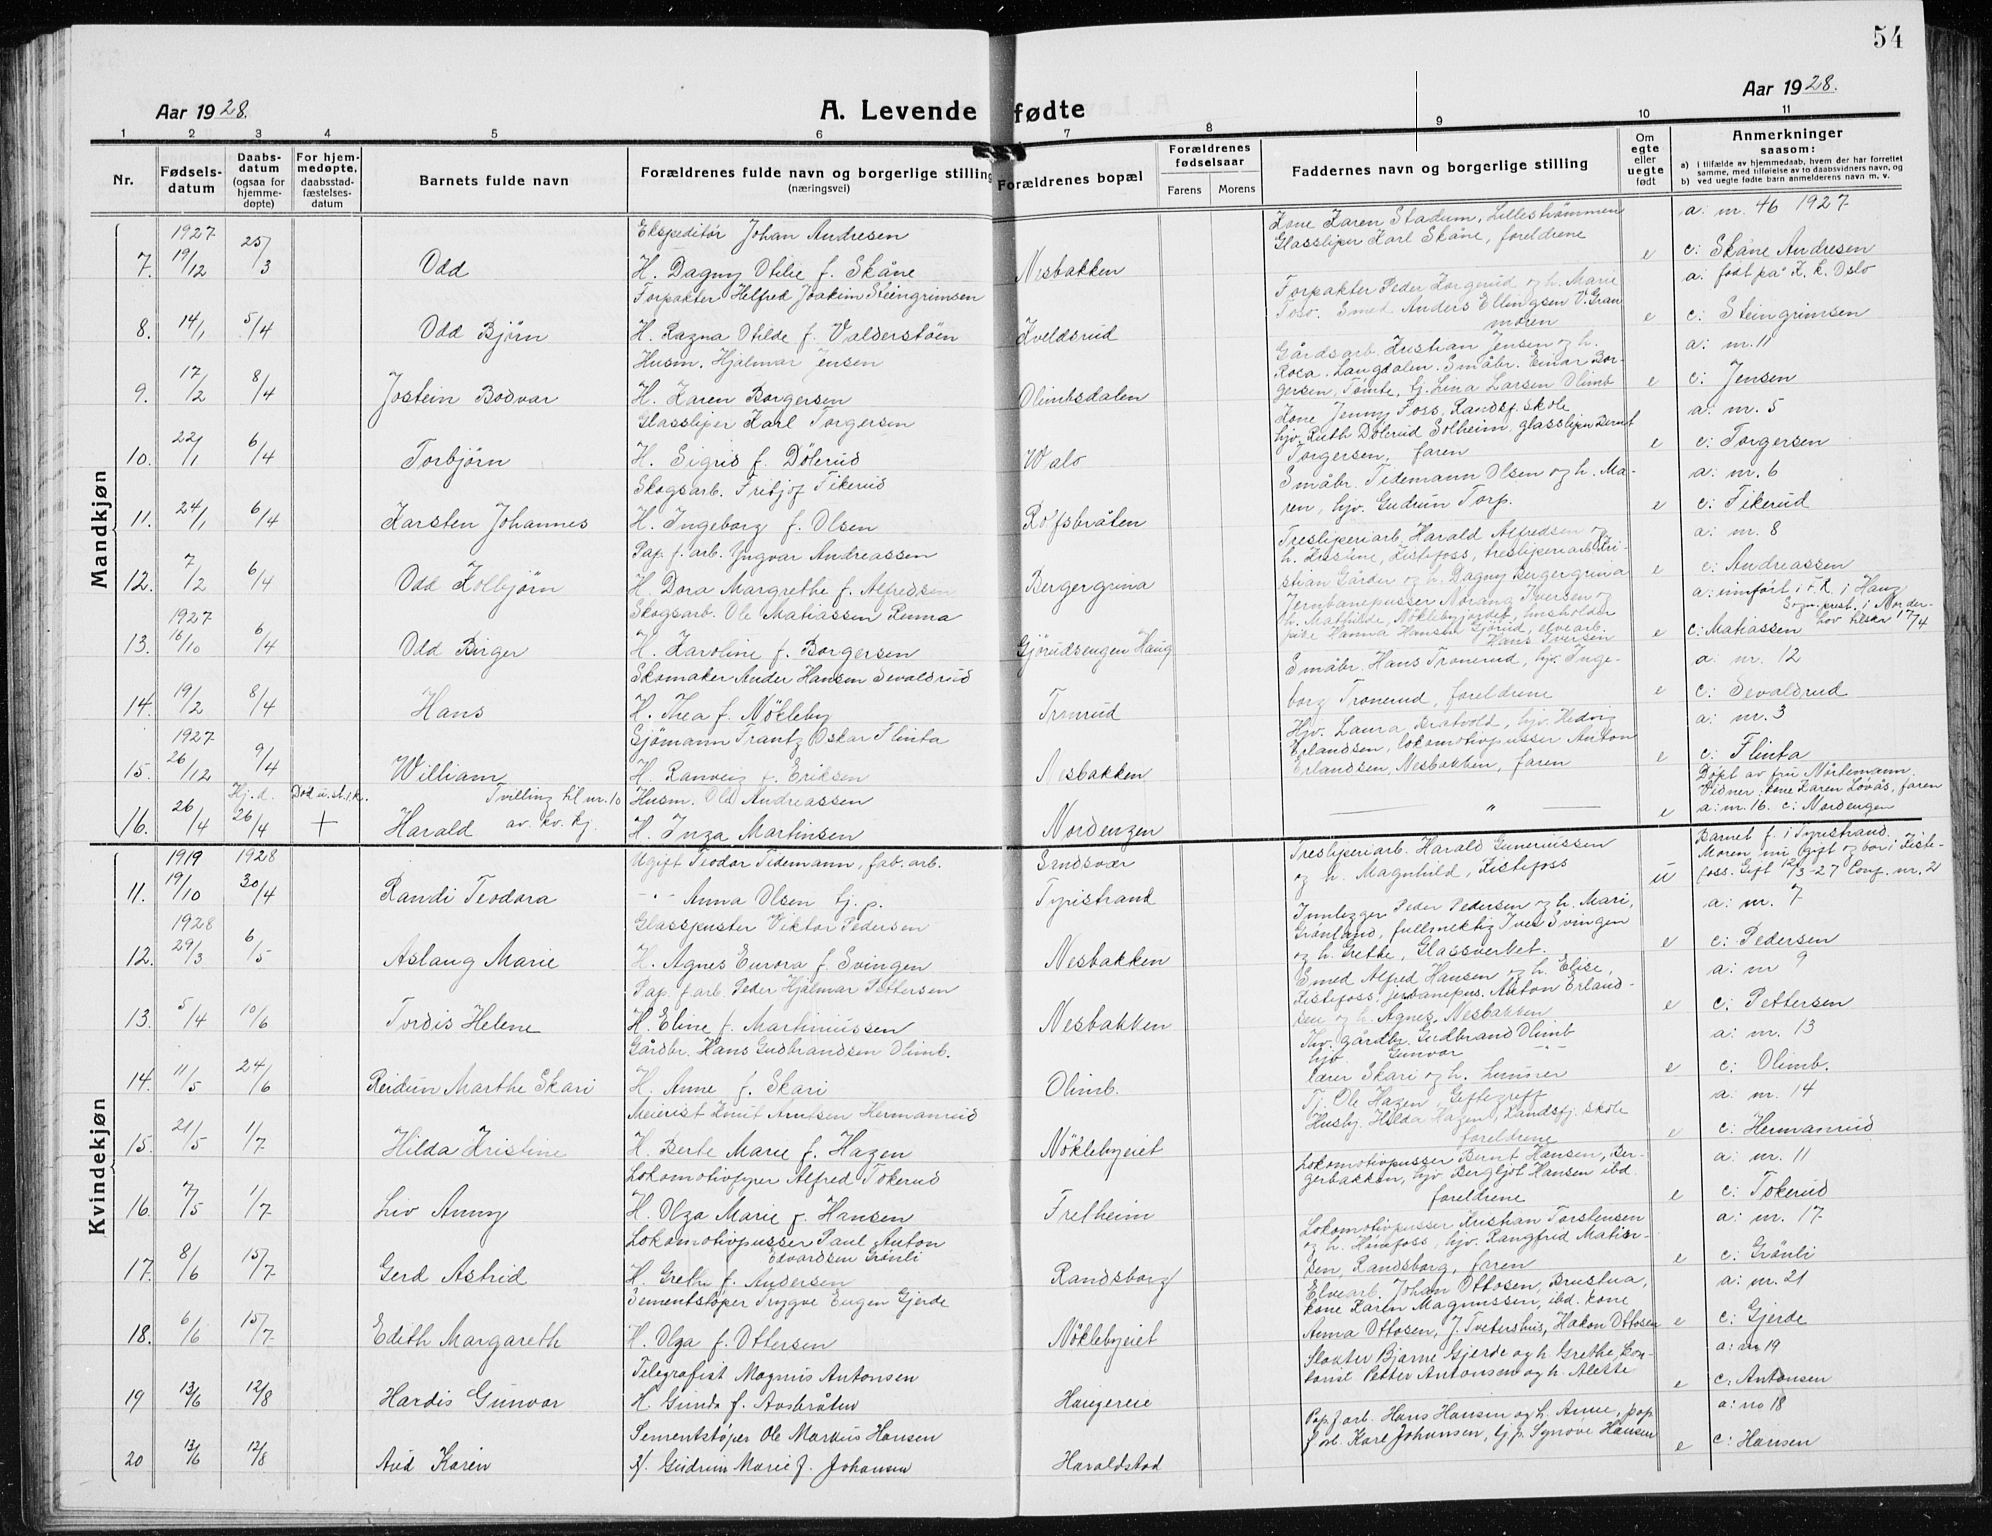 54
Aar 1928.
A. Levende fødte
Aar 1928.
1 2 3 4 5 6 7 8 9 10 11
Nr.
Fødsels-
datum
Daabs-
datum
(ogsaa for
hjemme-
døpte)
For hjem-
medøpte,
daabsstad-
fæstelses-
datum
Barnets fulde navn
Forældrenes fulde navn og borgerlige stilling
(næringsvei)
Forældrenes bopæl
Forældrenes
fødselsaar
Farens Morens
Faddernes navn og borgerlige stilling
Om
egte
eller
uegte
født
Anmerkninger
saasom:
a) i tilfælde av hjemmedaab, hvem der har forrettet
samme, med tilføielse av to daabsvidners navn, og
b) ved uegte fødte barn anmelderens navn m. v.
Mandkjøn
1927
7. 19/12 25/3 Odd
Ekspeditör Johan Andresen
H. Dagny Otilie f. Skåne
Nesbakken
Kone Karen Stadum, Lilleströmmen
Glassliper Karl Skåne, foreldrene
e
a: nr. 46 1927
c: Skåne Andresen
8. 14/1 5/4 Odd Björn
Forpakter Helfred Joakim Steingrimsen
H. Ragna Otilde f. Valderstöen
Kveldsrud
Forpakter Peder Korgerud og h. Marie
Toso. Smed Anders Ellingsen V. Gran
moren
e
a: født på K. k. Oslo
c: Steingrimsen
9. 17/2 8/4 Jostein Bodvar
Husm. Hjalmar Jensen
H. Karen Borgersen
Olimbsdalen
Gårdsarb. Kristian Jensen og h.
Roca. Langdalen. Småbr. Einar Bor-
gersen, Tomte, tj. Lina Larsen Olimb
e
a: nr. 11
c: Jensen
10. 22/1 6/4 Torbjörn
Glassliper Karl Torgersen
H. Sigrid f. Dölerud
Walo
Kone Jenny Foss, Randsf. skole
hjv. Ruth Dölerud Solheim, glassliper Bernt
Torgersen, faren
e
a: nr. 5
c: Torgersen
11. 24/1 6/4 Karsten Johannes
Skogsarb. Fritjof Tikerud
H. Ingeborg f. Olsen
Rolfsbråten
Småbr. Tidemann Olsen og h. Ma-
ren, hjv. Gudrun Torp.
e
a: nr. 6
c: Tikerud
12. 7/2 6/4 Odd Kolbjörn
Pap. f. arb. Yngvar Andreassen
H. Dora Margrethe f. Alfredsen
Bergergrina
Tresliperiarb. Harald Alfredsen og
h. Kristine, Kistefoss, tresliperiarb. Kri-
stian Gårder og h. Dagny Bergergrina
e
a: nr. 8
c: Andreassen
1927
13. 16/10 6/4 Odd Birger
Skogsarb. Ole Matiassen Ruma
H. Karoline f. Borgersen
Gjörudsengen Haug
Jernbanepusser Norang Iversen og
h. Mathilde, Nöklebyjordet, husholder
pike Hanna Hansen Gjörud, elvearb.
Hans Iversen
e
a: innfört i k. i Haug
Sogn. prest. i Norder-
hov tilskr 17/4
c: Matiassen
14. 19/2 8/4 Hans
Skomaker Ander Hansen Sevaldrud
H. Thea f. Nökleby
Tronrud
Småbr. Hans Tronerud, hjv. Inge-
borg Tronerud, foreldrene
e
a: nr. 12
c: Sevaldrud
1927
15. 26/12 9/4 William
Sjömann Frantz Oskar Flinta
H. Ranveig f. Eriksen
Nesbakken
Hjv. Laura Bratvold, hjv. Hedvig
Erlandsen, lokomotivpusser Anton
Erlandsen, Nesbakken, faren
e
a: nr. 3
c: Flinta
16. 26/4 Hj. d. 26/4 Död u. st. i k. + Harald
Tvilling til nr. 10
av. kv. kj.
Husm. Ole Andreassen
H. Inga Martinsen
Nordengen
"
e
Döpt av fru Nörtemann
Vidner: kone Karen Lövås, faren
a: nr. 16. c: Nordengen
Kvindekjøn
1919 1928
11. 19/10 30/4 Randi Teodora
Ugift Teodor Tidemann, fab. arb.
Anna Olsen tj. p.
Sandsvær
Tyristrand
Tresliperiarb. Harald Guneriussen
og h. Magnhild, Kistefoss
u
Barnet f. i Tyristrand
Moren nu gift og bor i Kiste-
foss. Gift 12/3-27 Conf. nr. 2
1928
12. 29/3 6/5 Aslaug Marie
Glasspuster Viktor Pedersen
H. Agnes Eurora f. Svingen
Nesbakken
Innlegger Peder Pedersen og h. Mari,
Grönland, fullmektig Iver Svingen
og h. Grethe, Glassverket.
e
a: nr. 7
c: Pedersen
13. 5/4 10/6 Tordis Helene
Pap. f. arb. Peder Hjalmar Pettersen
H. Eline f. Martiniussen
Nesbakken
Smed Alfred Hansen og h. Elise,
Kistefoss, jerbanepus. Anton Erland-
sen og h. Agnes, Nesbakken
e
a: nr 9
c: Pettersen
14. 11/5 24/6 Reidun Marthe Skari
Gårdbr. Hans Gudbrandsen Olimb.
H. Anne f. Skari
Olimb.
Fhv. gårdbr. Gudbrand Olimb
hjv. Gunvor
lærer Skari og h. Lunner
e
a: nr. 13
c: Olimb.
15. 21/5 1/7 Hilda Kristine
Meierist Knut Arntsen Hermanrud
H. Berte Marie f. Hagen
Nöklebyeiet
Tj. Ole Hagen, Geftegreff
Husbj. Hilda Hagen, Randsfj. skole
foreldrene
e
a: nr. 14
c: Hermanrud
16. 7/5 1/7 Liv Anny
Lokomotivfyrer Alfred Tokerud
H. Olga Marie f. Hansen
Fretheim
Lokomotivpusser Bernt Hansen, Ber-
gerbakken, hjv Bergljot Hansen ibd.
foreldrene
e
a: nr. 11
c: Tokerud
17. 8/6 15/7 Gerd Astrid
Lokomotivpusser Paul Anton
Edvardsen Grönli
H. Grethe f. Andersen
Randsborg
Lokomotivpusser Kristian Torstensen
og h. Hönefoss, hjv. Rangfrid Matin-
sen, Randsborg, faren
e
a: nr. 17
c: Grönli
18. 6/6 15/7 Edith Margareth
Sementstöper Trygve Eugen Gjerde
H. Olga f. Ottersen
Nöklebyeiet
Elvearb. Johan Ottosen, Brustua,
kone Karen Magnussen, ibd. kone
Anna Ottosen, J. Tvetershus, Hakon Ottosen
e
a: nr. 21
c: Gjerde
19 13/6 12/8 Hardis Gunvor
Telegrafist Magnus Antonsen
H. Gunda f. Aasbråten
Haugereie
Slakter Bjarne Gjerde og h. Grethe, kon-
torist Petter Antonsen og h. Alette
e
a: nr 19
c: Antonsen
20 13/6 12/8 Aud Karen
Sementstöper Ole Markus Hansen
H. Gudrun Marie f. Johansen
Haraldstad
Papf arb. Hans Hansen og h. Anne, pap
f. arb. Karl Johansen, tj. p. Synöve Hansen
e
a: no 18
c: Hansen